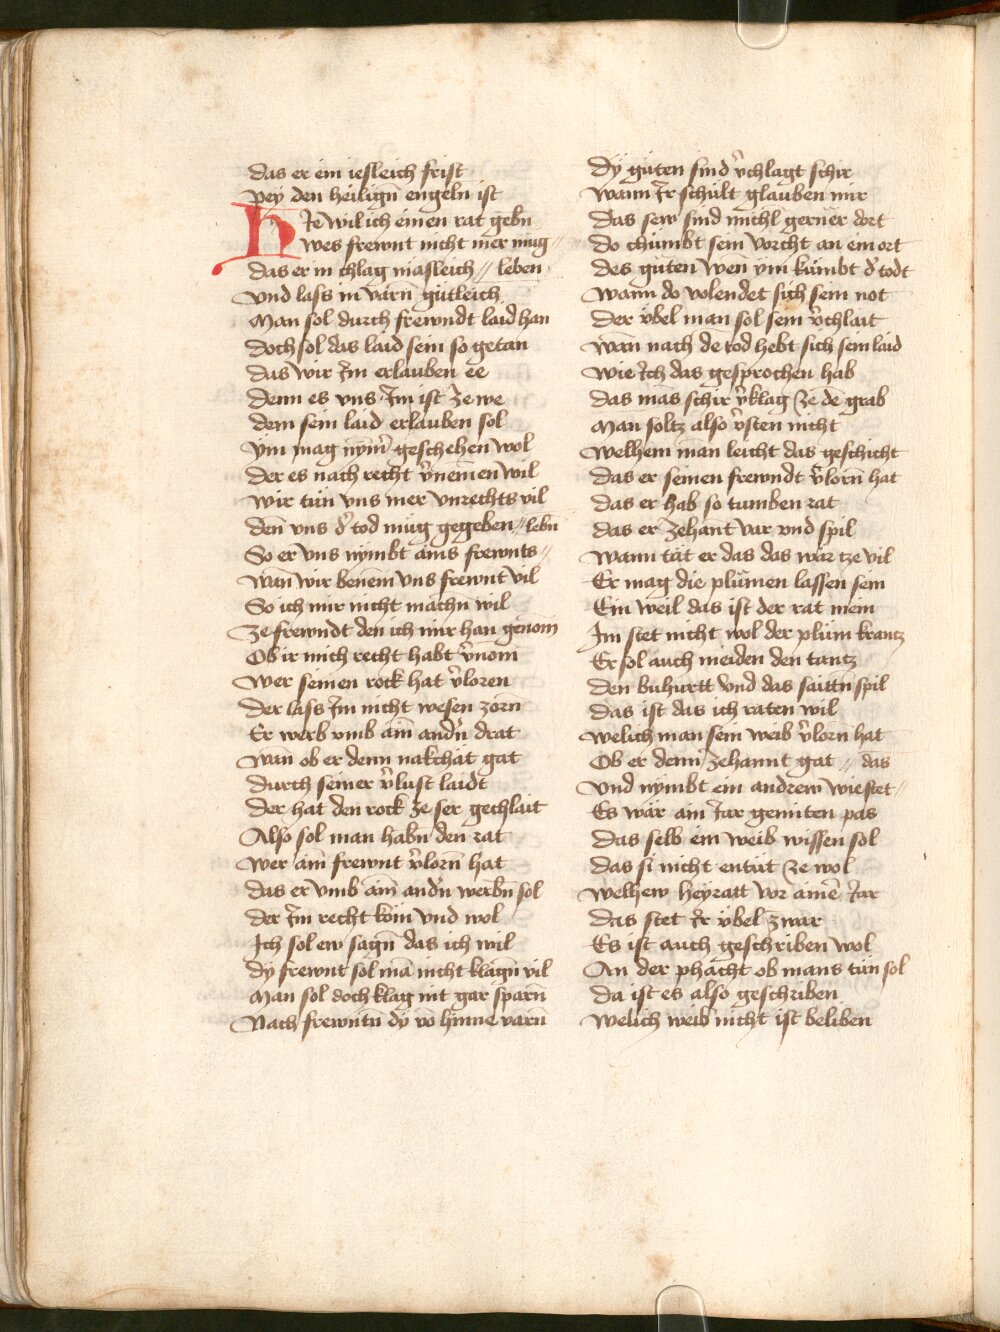 das er ein iesleich frist
pey den heilign̄ engeln ist
HIe wil ich einen rat gebn
wes frewnt nicht mer mug //
das er in chlag masleich // leben
vnd lass in varn̄ gütleich
Man sol durch frewndt laid han
doch sol das laid sein so getan
das wir Im erlauben ee
denn es vns Im ist ze we
dem sein laid erlauben sol
ÿm mag nÿm̄ geschehen wol
der es nach recht v̓nemen wil
wir tün vns mer vnrechts vil
den̄ vns d̓ tod müg gegeben // lebn̄
So er vns nÿmbt ains frewnts //
wan̄ wir benem̄ vns frewnt vil
So ich mir nicht mach̄n wil
ze frewndt den ich mir han genōm
Ob ir mich recht habt v̓nom̄
wer seinen rock hat v̓loren
der lass Im nicht wesen zorn̄
Er werb vmb ain̄ and̓n drat
wan̄ ob er denn nakchat gat
durch seiner v̓lust laidt
der hat den rock ze ser gechlait
Also sol man habn̄ den rat
wer ain̄ frewnt v̓lorn̄ hat
das er vmb ain̄ and̓n werbn̄ sol
der Im recht köm̄ vnd wol
Ich sol ew sagn̄ das ich wil
dÿ frewnt sol mā nicht klagn̄ vil
Man sol doch klag nit gar sparn̄
Nach frewntn̄ dÿ vō hinne varn̄
dÿ güten sind v̓chlagt schir
wann Ir schült glauben mir
das sew sind michl gerner dort
do chümbt sein vorcht an ein ort
des güten wen ÿm kümbt d̓ todt
wann do volendet sich sein not
der vbel man sol sein v̓chlait
wan̄ nach dē tod hebt sich sein laid
wie Ich das gesprochen hab
das mans schir v̓klag ze dē grab
Man soltz also v̓sten nicht
welhem man leicht das geschicht
das er seinen frewndt v̓lorn̄ hat
das er hab so tumben rat
das er zehant var vnd spil
wann tät er das das wär tze vil
Er mag die plümen lassen sein
Ein weil das ist der rat mein
Im stet nicht wol der plüm krantz
Er sol auch meiden den tantz
den buhurtt vnd das saittn̄ spil
das ist das ich raten wil
welich man sein weib v̓lorn̄ hat
Ob er denn zehannt gat // das
vnd nÿmbt ein andrew wie stet //
Es wär ain Iar gemiten pas
das selb ein weib wissen sol
das si nicht entüt ze wol
welhew heÿratt vor ainē Iar
das stet Ir vbel zwar
Es ist auch geschriben wol
An der phacht ob mans tün sol
da ist es also geschriben
welich weib nicht ist beliben